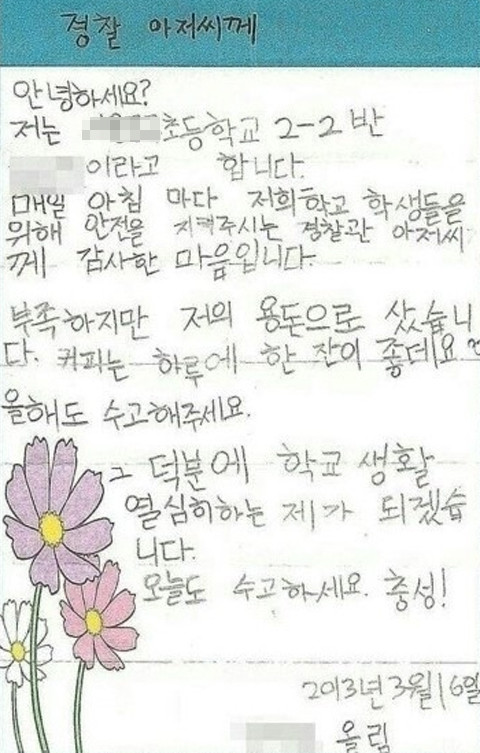 경찰 아저씨께
안녕하세요?
저는 초등학교 2-2반
이라고 합니다.
매일 아침 마다 저희학교 학생들을
위해 안전을 지켜주시는 경찰관 아저씨
께 감사한 마음입니다.
부족하지만 저의 용돈으로 샀습니
다. 커피는 하루에 한 잔이 좋데요♡
올해도 수고해주세요.
그 덕분에 학교 생활
열심히하는 제가 되겠습
니다.
오늘도 수고하세요. 충성!
2013년 3월 16일
올림